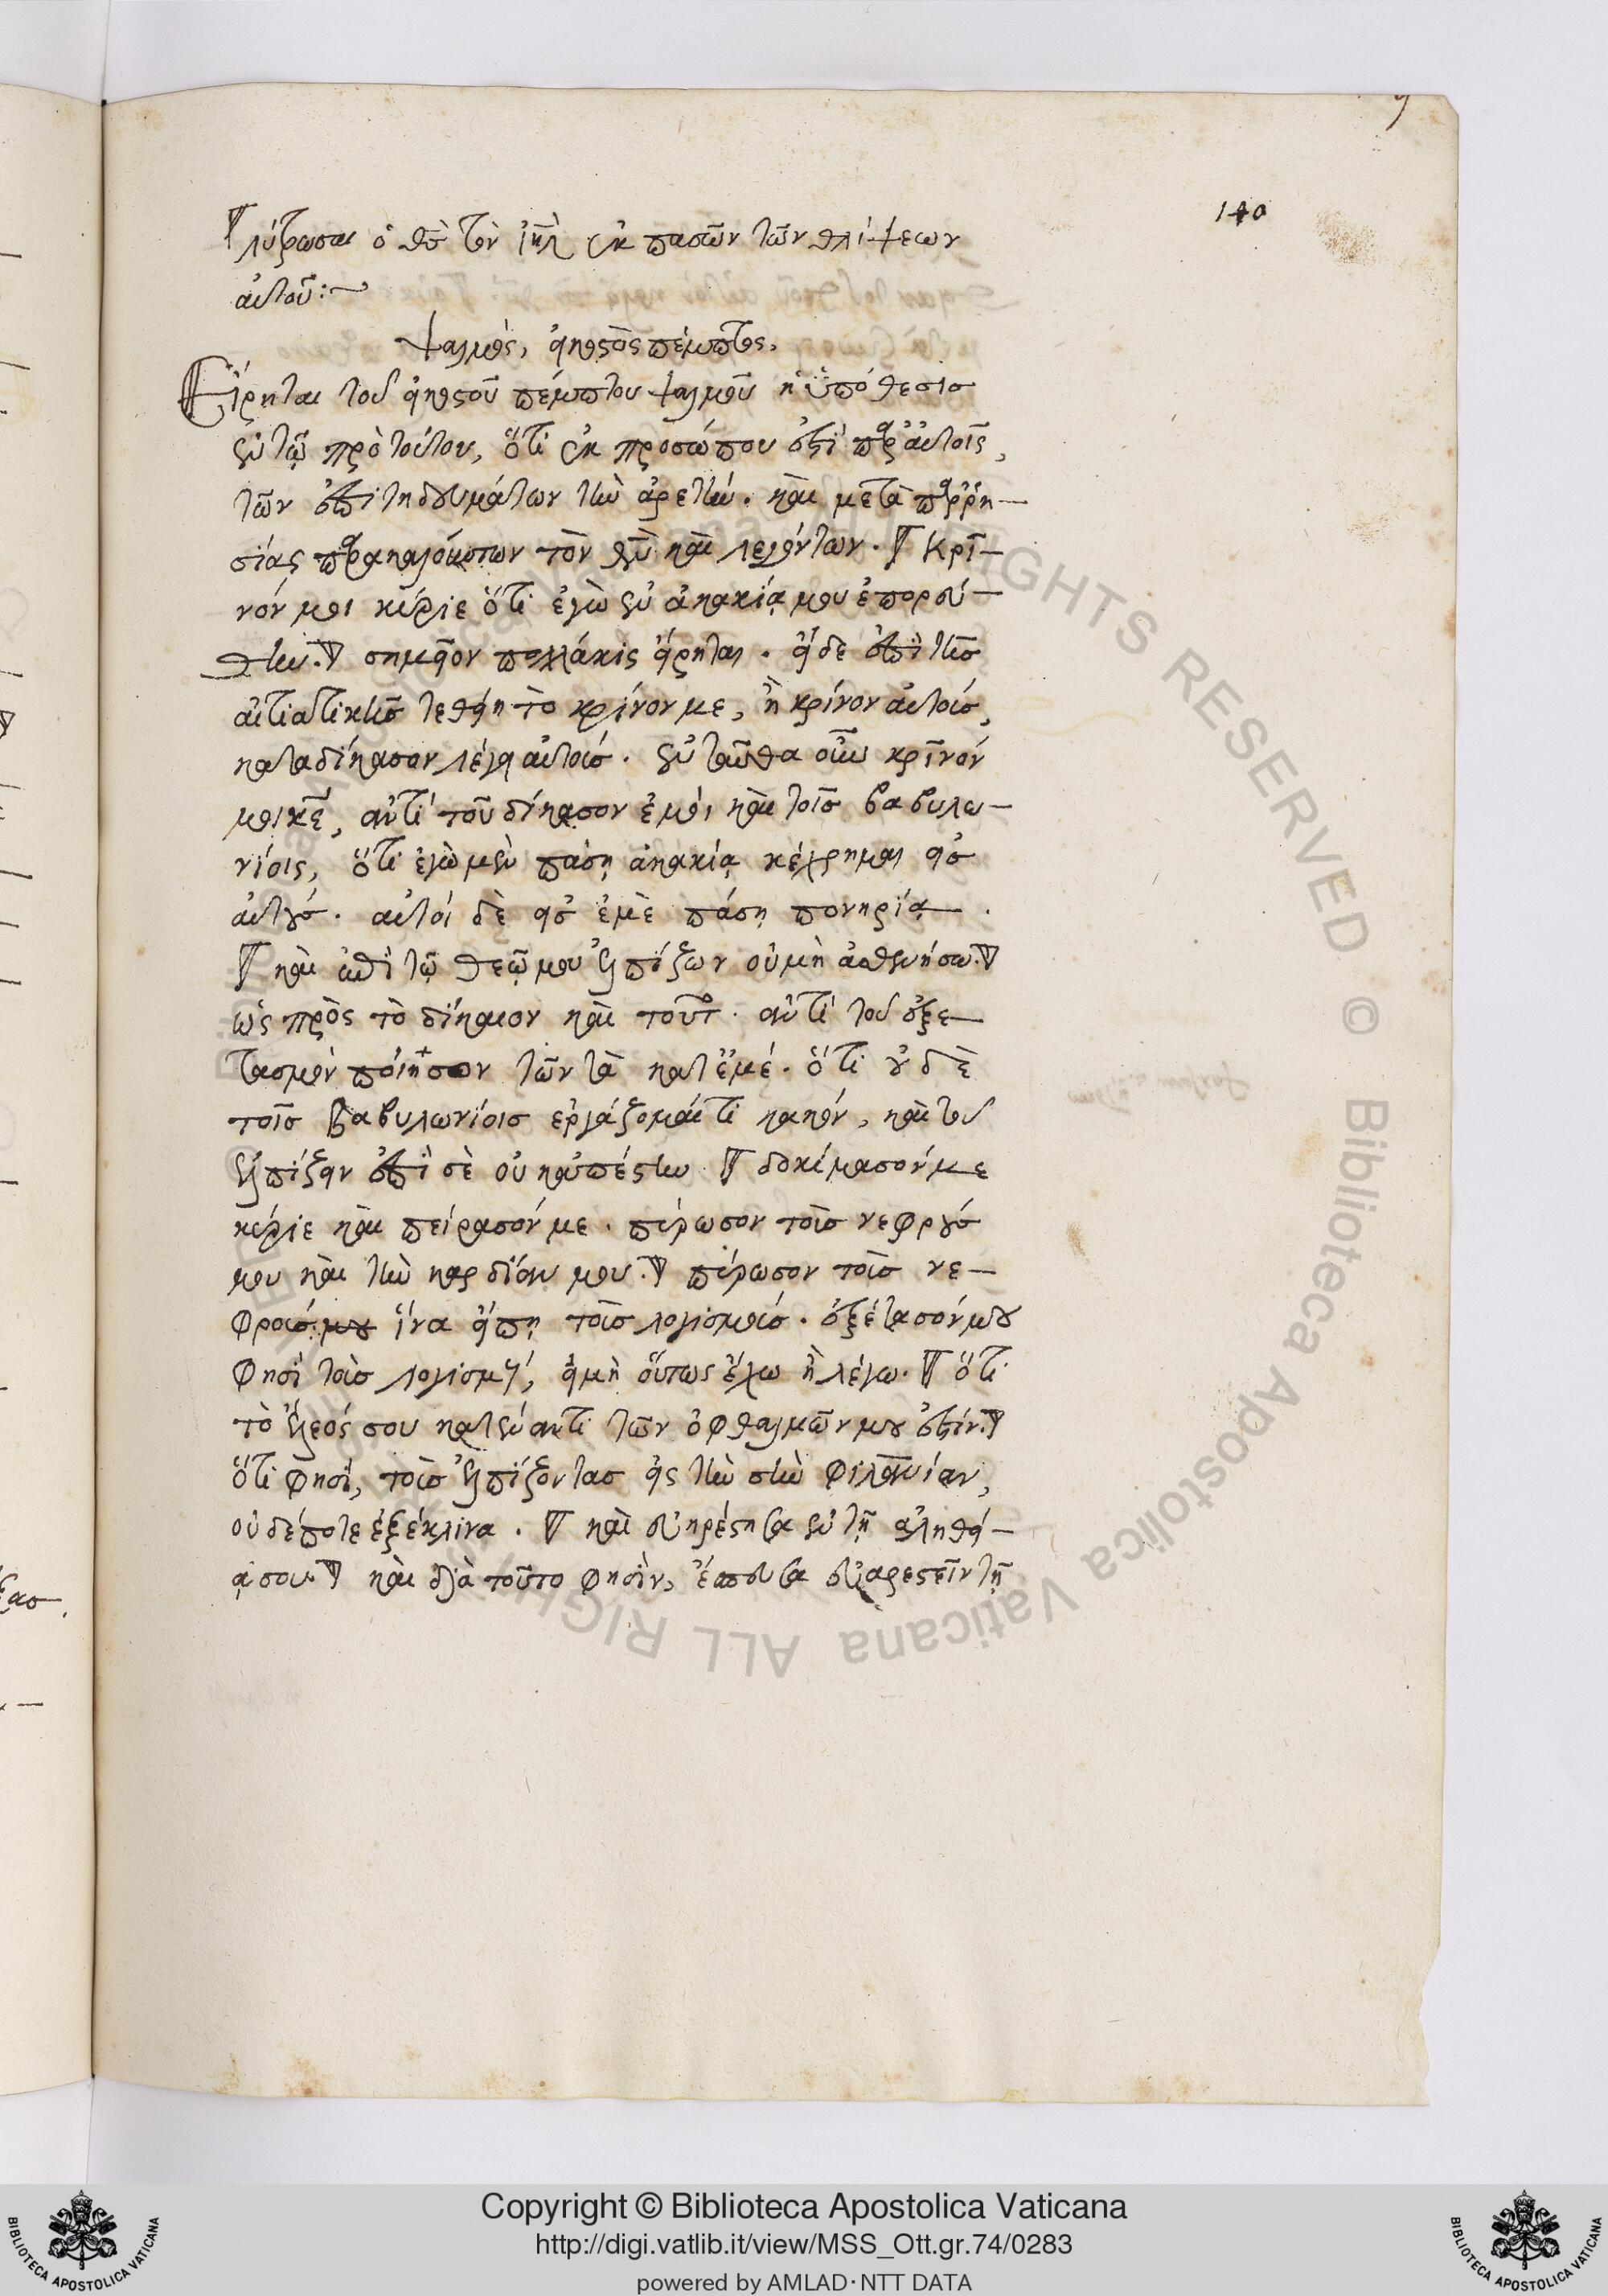 140
λύτρωσαι ὁ θς τὸν ιηλ ἐκ πασῶν τῶν θλίψεων
αὐτοῦ:~
ψαλμὸς, εἰκοστὸς πέμπτος.
Εἴρηται τοῦ εἰκοστοῦ πέμπτου ψαλμοῦ ἡ ὑπόθεσισ
ἐν τῷ πρὸ τούτου, ὅτι ἐκ προσώπου ἐστὶ παρ αὐτοῖς,
τῶν ἐπιτηδευμάτων τὴν ἀρετὴν. καὶ μετὰ παρρη-
σίας παρακαλούντων τὸν θν καὶ λεγόντων. Κρῖ-
νόν μοι κύριε ὅτι ἐγὼ ἐν ἀκακίᾳ μου ἐπορεύ-
θην. σημεῖον πολλάκις εἴρηται. εἰ δὲ ἐπὶ τῆσ
αἰτιατικῆσ τεθείη τὸ κρίνον με, ἢ κρίνον αὐτούσ,
καταδίκασον λέγει αὐτούσ. ἐν ταῦθα οὖν κρῖνόν
μοι κε, ἀντὶ τοῦ δίκασον ἐμοὶ καὶ τοῖσ βαβυλω-
νίοις, ὅτι ἐγὼ μὲν πάσῃ ἀκακίᾳ κέχρημαι εἰσ
αὐτούσ. αὐτοὶ δὲ εἰσ ἐμὲ πάσῃ πονηρίᾳ.
καὶ ἐπὶ τῷ θεῷ μου ἐλπίζων οὐ μὴ ἀσθενήσω.
ὡς πρὸς τὸ δίκαιον καὶ τοῦτο. ἀντὶ τοῦ ἐξε-
τασμὸν ποίησον τῶν τὰ κατ ἐμέ. ὅτι οὐδὲ
τοῖσ Βαβυλωνίοισ ἐργάζομαί τι κακόν, καὶ τοῦ
ἐλπίζειν ἐπὶ σὲ οὐκ ἀπέστην. δοκίμασόν με
κύριε καὶ πείρασόν με. πύρωσον τοὺσ νεφρούσ
μου καὶ τὴν καρδίαν μου. πύρωσον τοὺσ νε-
φρούσ μου ἵνα εἴπῃ τοὺσ λογισμούσ. ἐξέτασόν μου
φησὶ τοὺσ λογισμού, εἰ μὴ οὕτως ἔχω ἢ λέγω. ὅτι
τὸ ἔλεός σου κατεναντι τῶν ὀφθαλμῶν μου ἐστίν.
ὅτι φησί, τοὺσ ἐλπίζοντασ εἰς τὴν σὴν φιλανίαν,
οὐδέποτε ἐξέκλινα. καὶ εὐηρέστησα ἐν τῇ ἀληθεί-
ᾳ σου. καὶ διὰ τοῦτο φησὶν, ἔσπευσα εὐαρεστεῖν τῇ
Copyright © Biblioteca Apostolica Vaticana
http://digi.vatlib.it/view/MSS_Ott.gr.74/0283
powered by AMLAD·NTT DATA